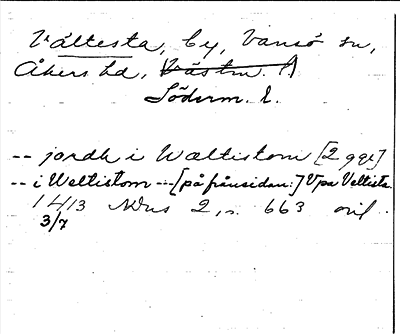 Vältesta, by, Vansö sn,
Åkers hd, Västm. l
Söderm. l.
-- jordh i Wæltistom [2 ggr]
-- i Weltistom --- [på frånsidan:] Vpa Veltista
1413 3/7 NDns 2, s. 663 oril.